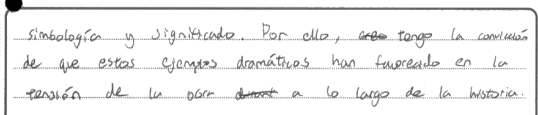 simbología y significado. Por ello, creo tengo la convicción
de que estos ejemplos dramáticos han favorecido en la
tensión de la obra a lo largo de la historia.